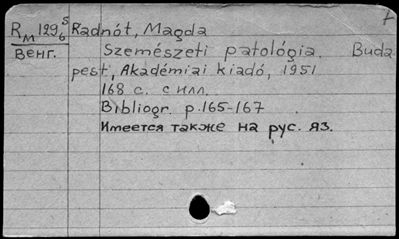 R_M 129⁵₆ Radnót, Magda
Венг. Szemészeti patológia Buda
pest, Akadémiai kiadó, 1951
168 с. с илл.
Bibliogr. p.165-167
Имеется также на рус. яз.